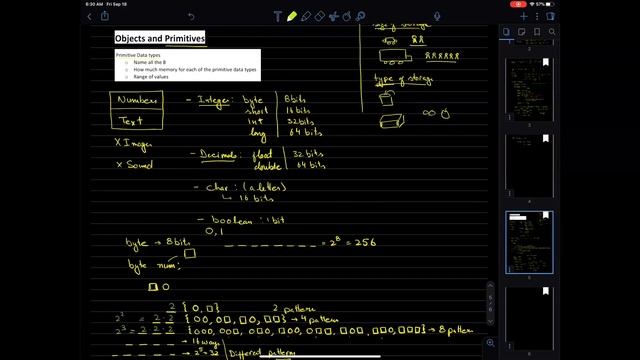 6:30 AM Fri Sep 18
57%
Objects and Primitives
Primitive Data types
Name all the 8
How much memory for each of the primitive data types
Range of values
type of storage
Numbers
Text
x Images
x Sound
- Integer: byte 8 bits
short 16 bits
int 32 bits
long 64 bits
- Decimals: float 32 bits
double 64 bits
- char: (a letter)
↳ 16 bits
- boolean: 1 bit
0, 1
byte → 8 bits
_ _ _ _ _ _ _ _ = 2^8 = 256
byte num;
2 {0, □} 2 pattern
2^2 = 2·2 {00, 0□, □0, □□} → 4 pattern
2^3 = 2·2·2 → 8 pattern
→ 16 ways
→ 2^5 = 32 Different patterns